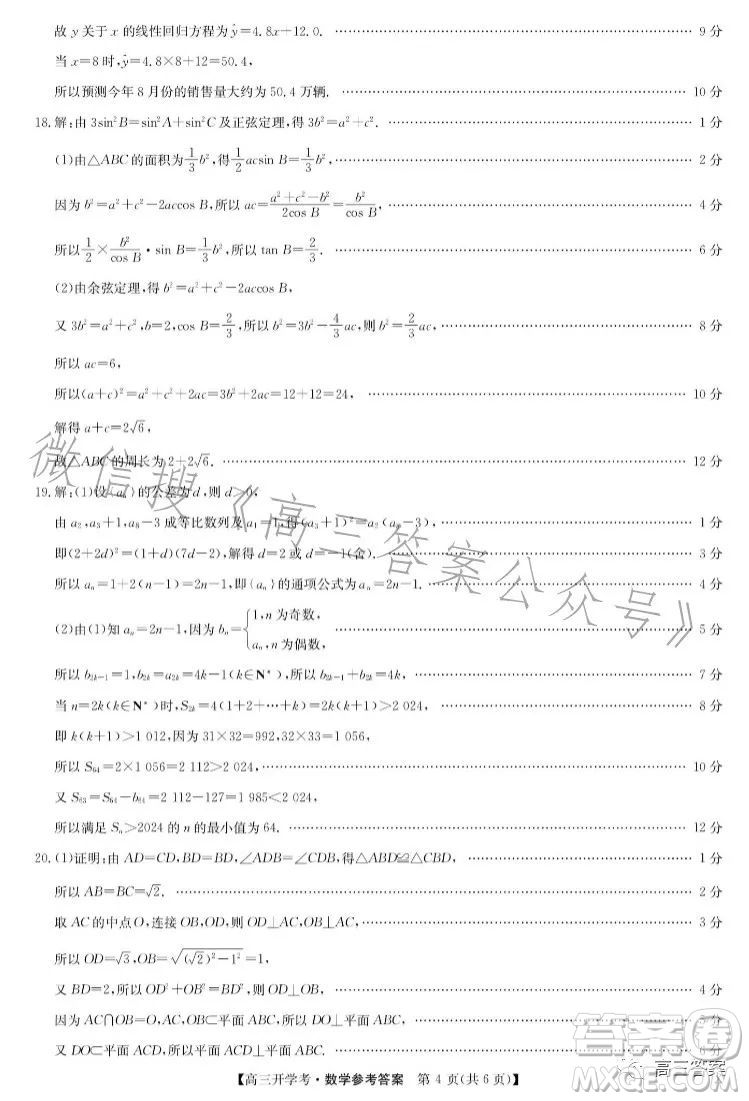 故 y 关于 x 的线性回归方程为ŷ=4.8x+12.0. …… 9 分
当 x=8 时,ŷ=4.8×8+12=50.4,
所以预测今年 8 月份的销售量大约为 50.4 万辆. …… 10 分
18.解:由 3sin²B=sin²A+sin²C 及正弦定理,得 3b²=a²+c². …… 1 分
(1)由△ABC 的面积为1/3 b²,得1/2 acsin B=1/3 b², …… 2 分
因为 b²=a²+c²−2accos B,所以 ac=(a²+c²−b²)/(2cos B)=b²/cos B, …… 4 分
所以1/2×b²/cos B·sin B=1/3 b²,所以 tan B=2/3. …… 6 分
(2)由余弦定理,得 b²=a²+c²−2accos B,
又 3b²=a²+c²,b=2,cos B=2/3,所以 b²=3b²−4/3 ac,则 b²=2/3 ac, …… 8 分
所以 ac=6,
所以(a+c)²=a²+c²+2ac=3b²+2ac=12+12=24, …… 10 分
解得 a+c=2√6,
故△ABC 的周长为 2+2√6. …… 12 分
19.解:(1)设{aₙ}的公差为 d,则 d>0,
由 a₂,a₃+1,a₈−3 成等比数列及 a₁=1,得(a₃+1)²=a₂(a₈−3), …… 1 分
即(2+2d)²=(1+d)(7d−2),解得 d=2 或 d=−1(舍). …… 3 分
所以 aₙ=1+2(n−1)=2n−1,即{aₙ}的通项公式为 aₙ=2n−1. …… 4 分
(2)由(1)知 aₙ=2n−1,因为 bₙ={1,n 为奇数, aₙ,n 为偶数, …… 5 分
所以 b₂ₖ₋₁=1,b₂ₖ=a₂ₖ=4k−1(k∈N*),所以 b₂ₖ₋₁+b₂ₖ=4k, …… 7 分
当 n=2k(k∈N*)时,S₂ₖ=4(1+2+…+k)=2k(k+1)>2 024, …… 8 分
即 k(k+1)>1 012,因为 31×32=992,32×33=1 056,
所以 S₆₄=2×1 056=2 112>2 024, …… 10 分
又 S₆₃=S₆₄−b₆₄=2 112−127=1 985<2 024,
所以满足 Sₙ>2024 的 n 的最小值为 64. …… 12 分
20.(1)证明:由 AD=CD,BD=BD,∠ADB=∠CDB,得△ABD≌△CBD, …… 1 分
所以 AB=BC=√2. …… 2 分
取 AC 的中点 O,连接 OB,OD,则 OD⊥AC,OB⊥AC, …… 3 分
所以 OD=√3,OB=√((√2)²−1²)=1,
又 BD=2,所以 OD²+OB²=BD²,则 OD⊥OB, …… 4 分
因为 AC∩OB=O,AC,OB⊂平面 ABC,所以 DO⊥平面 ABC, …… 5 分
又 DO⊂平面 ACD,所以平面 ACD⊥平面 ABC. …… 6 分
【高三开学考·数学参考答案 第 4 页(共 6 页)】
微信搜《高三答案公众号》
答案圈
高三答案